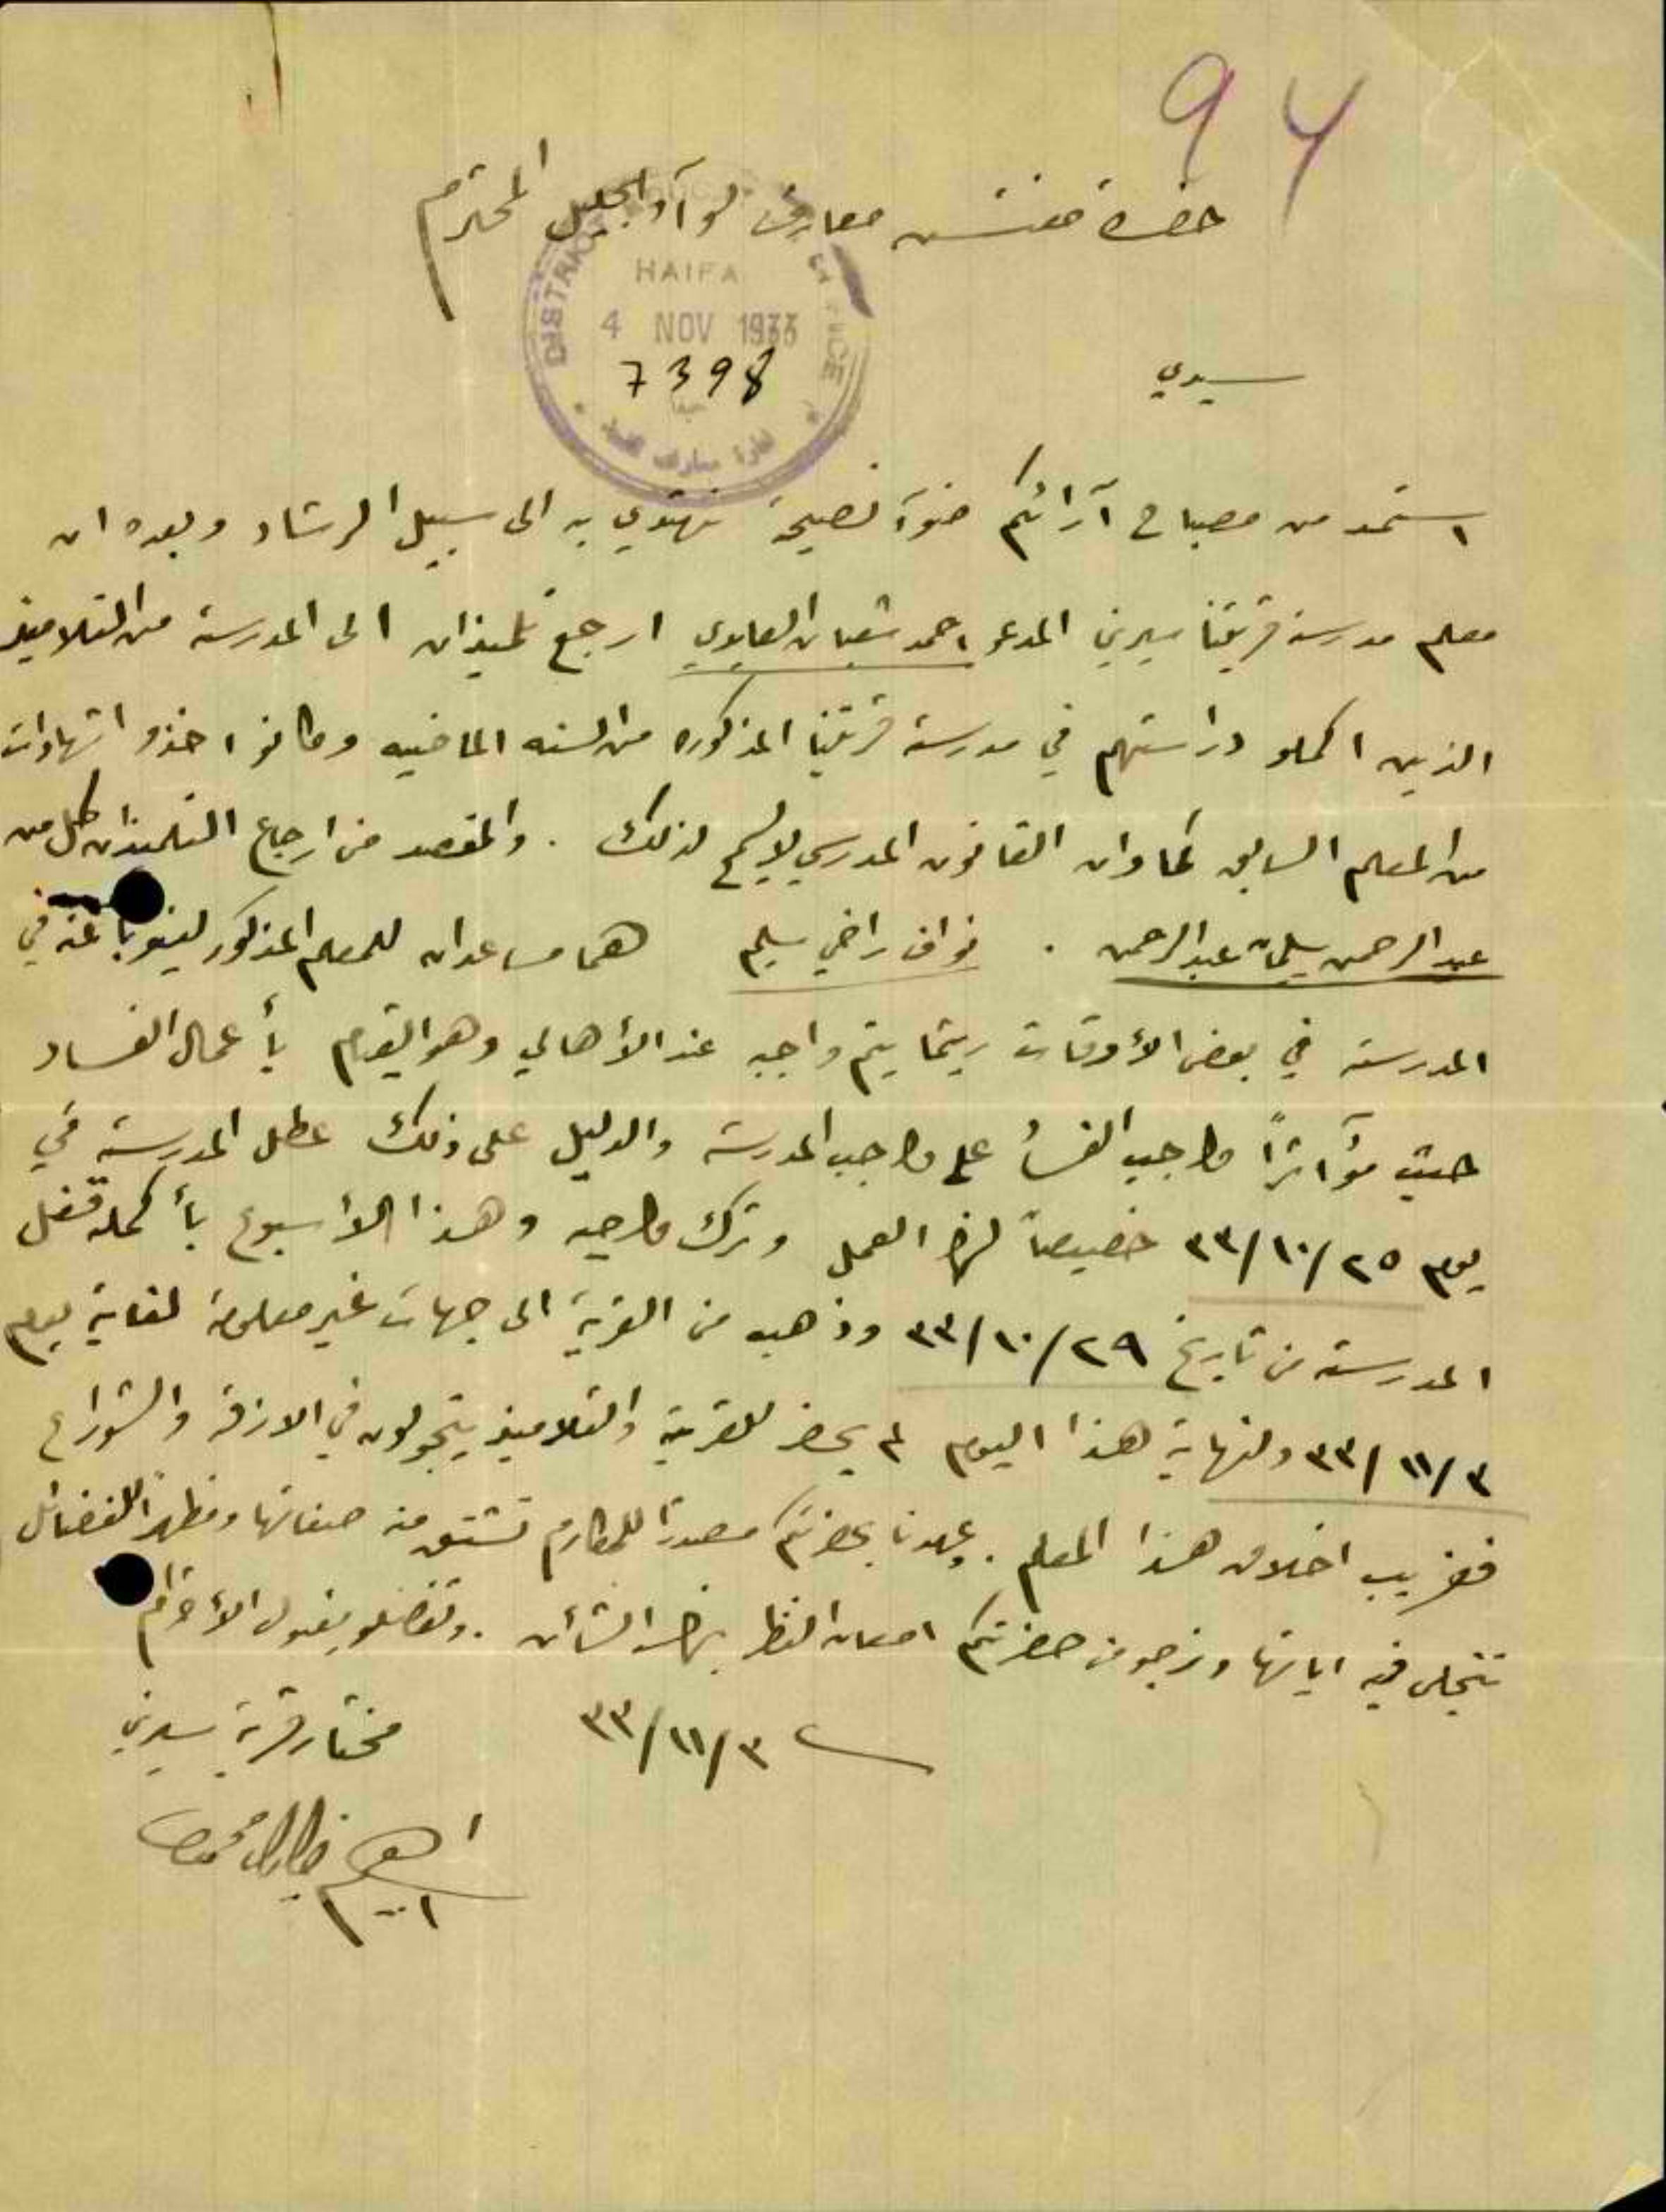 94
حضرة مفتش معارف لوآء الجليل المحترم
DISTRICT
HAIFA
4 NOV 1933
7398
حيفا
سيدي
استمد من مصباح آرائكم ضوآ نصيحة نهتدي به الى سبيل الرشاد وبعده ان
معلم مدرسة قريتنا سيرين المدعو احمد شعبان العابدي ارجع تلميذان الى المدرسة من التلاميذ
الذين اكملو دراستهم في مدرسة قريتنا المذكوره من السنه الماضيه وكانوا اخذو اشهادات
من المعلم السابق كما وان القانون المدرسي لا يسمح لذلك . والمقصد من ارجاع التلميذان كل من
عبد الرحمن سليمان عبد الرحمن . نواف راضي سليم هما مساعدان للمعلم المذكور لينوبا عنه في
المدرسة في بعض الأوقات ريثما يتم واجبه عند الأهالي وهو القيام بأعمال الفساد
حيث مؤآثراً واجب الفساد على واجب المدرسة والدليل على ذلك عطل المدرسة في
يوم ٢٥/١٠/٣٣ خصيصاً لهذا العمل وترك واجبه وهذا الاسبوع بأكمله قفل
المدرسة من تاريخ ٢٩/١٠/٣٣ وذهب من القرية الى جهات غير معلومة لغاية يوم
٣/١١/٣٣ ولنهاية هذا اليوم لم يحضر للقرية والتلاميذ يتجولون في الازقة والشوراع
فغريب اخلاق هذا المعلم . وعهدنا بحضرتكم مصدراً للمكارم تشتق منه صفاتها ومظهراً للفضائل
تتجلى فيه اياتها ونرجو من حضرتكم امعان النظر بهذا الشأن . وتفضلو بقبول الأحترام
٣/١١/٣٣
مختار قرية سيرين
ابراهيم